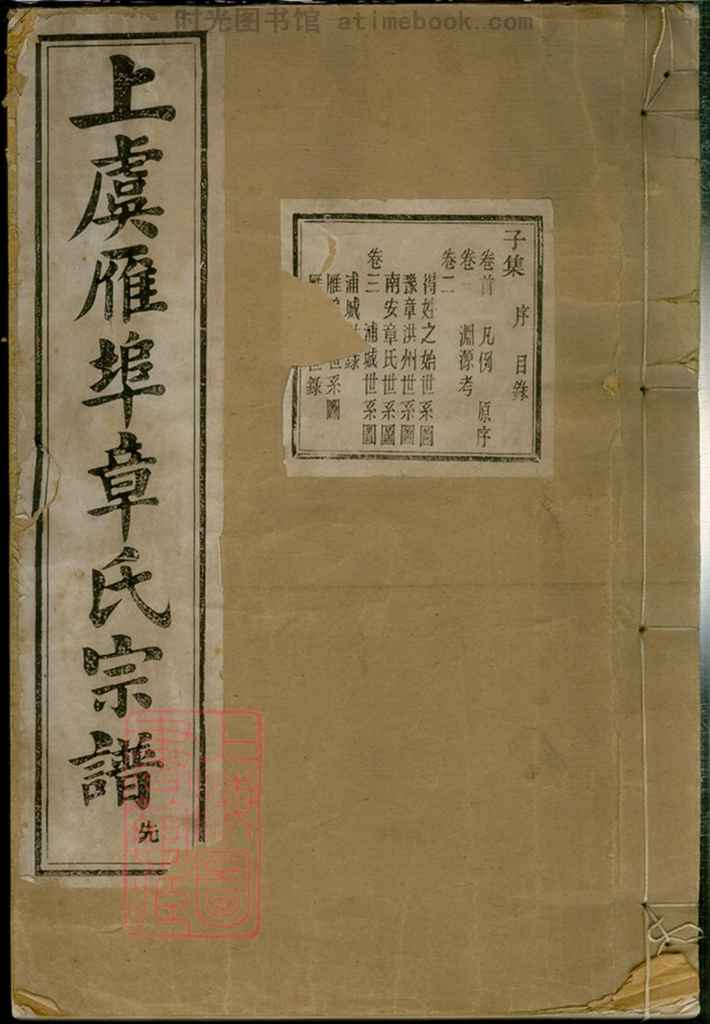 时光图书馆 atimebook.com
上虞雁埠章氏宗譜
先
子集 序 目錄
卷首 凡例 原序
卷一 淵源考
卷二
得姓之始世系圖
豫章洪州世系圖
南安章氏世系圖
卷三 浦城世系圖
浦城 錄
雁 世系圖
世錄